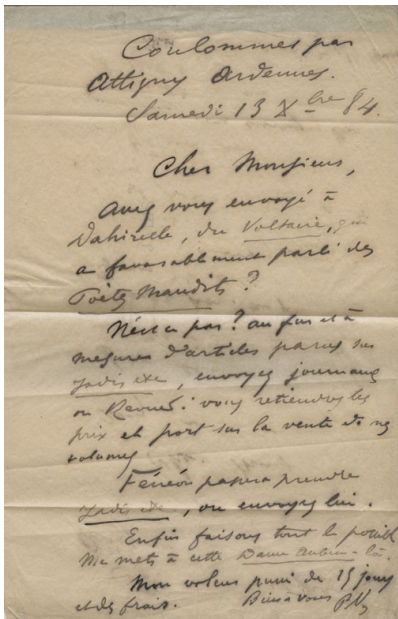 Coulommes par
Attigny Ardennes.
Samedi 13 Xbre 84.
Cher Monsieur,
Avez vous envoyé à
du Voltaire, qui
a favorablement parlé des
Poètes Maudits?
N'est ce pas? au fur et à
mesure d'articles parus sur
Jadis etc, envoyez journaux
ou Revues: vous retiendrez les
prix et port sur la vente de mes
volumes
Fénéon passera prendre
Jadis etc, ou envoyez lui.
Enfin faisons tout le possible
à cette Dame là.
Mon voleur puni de 15 jours
et des frais. Bien à vous PV